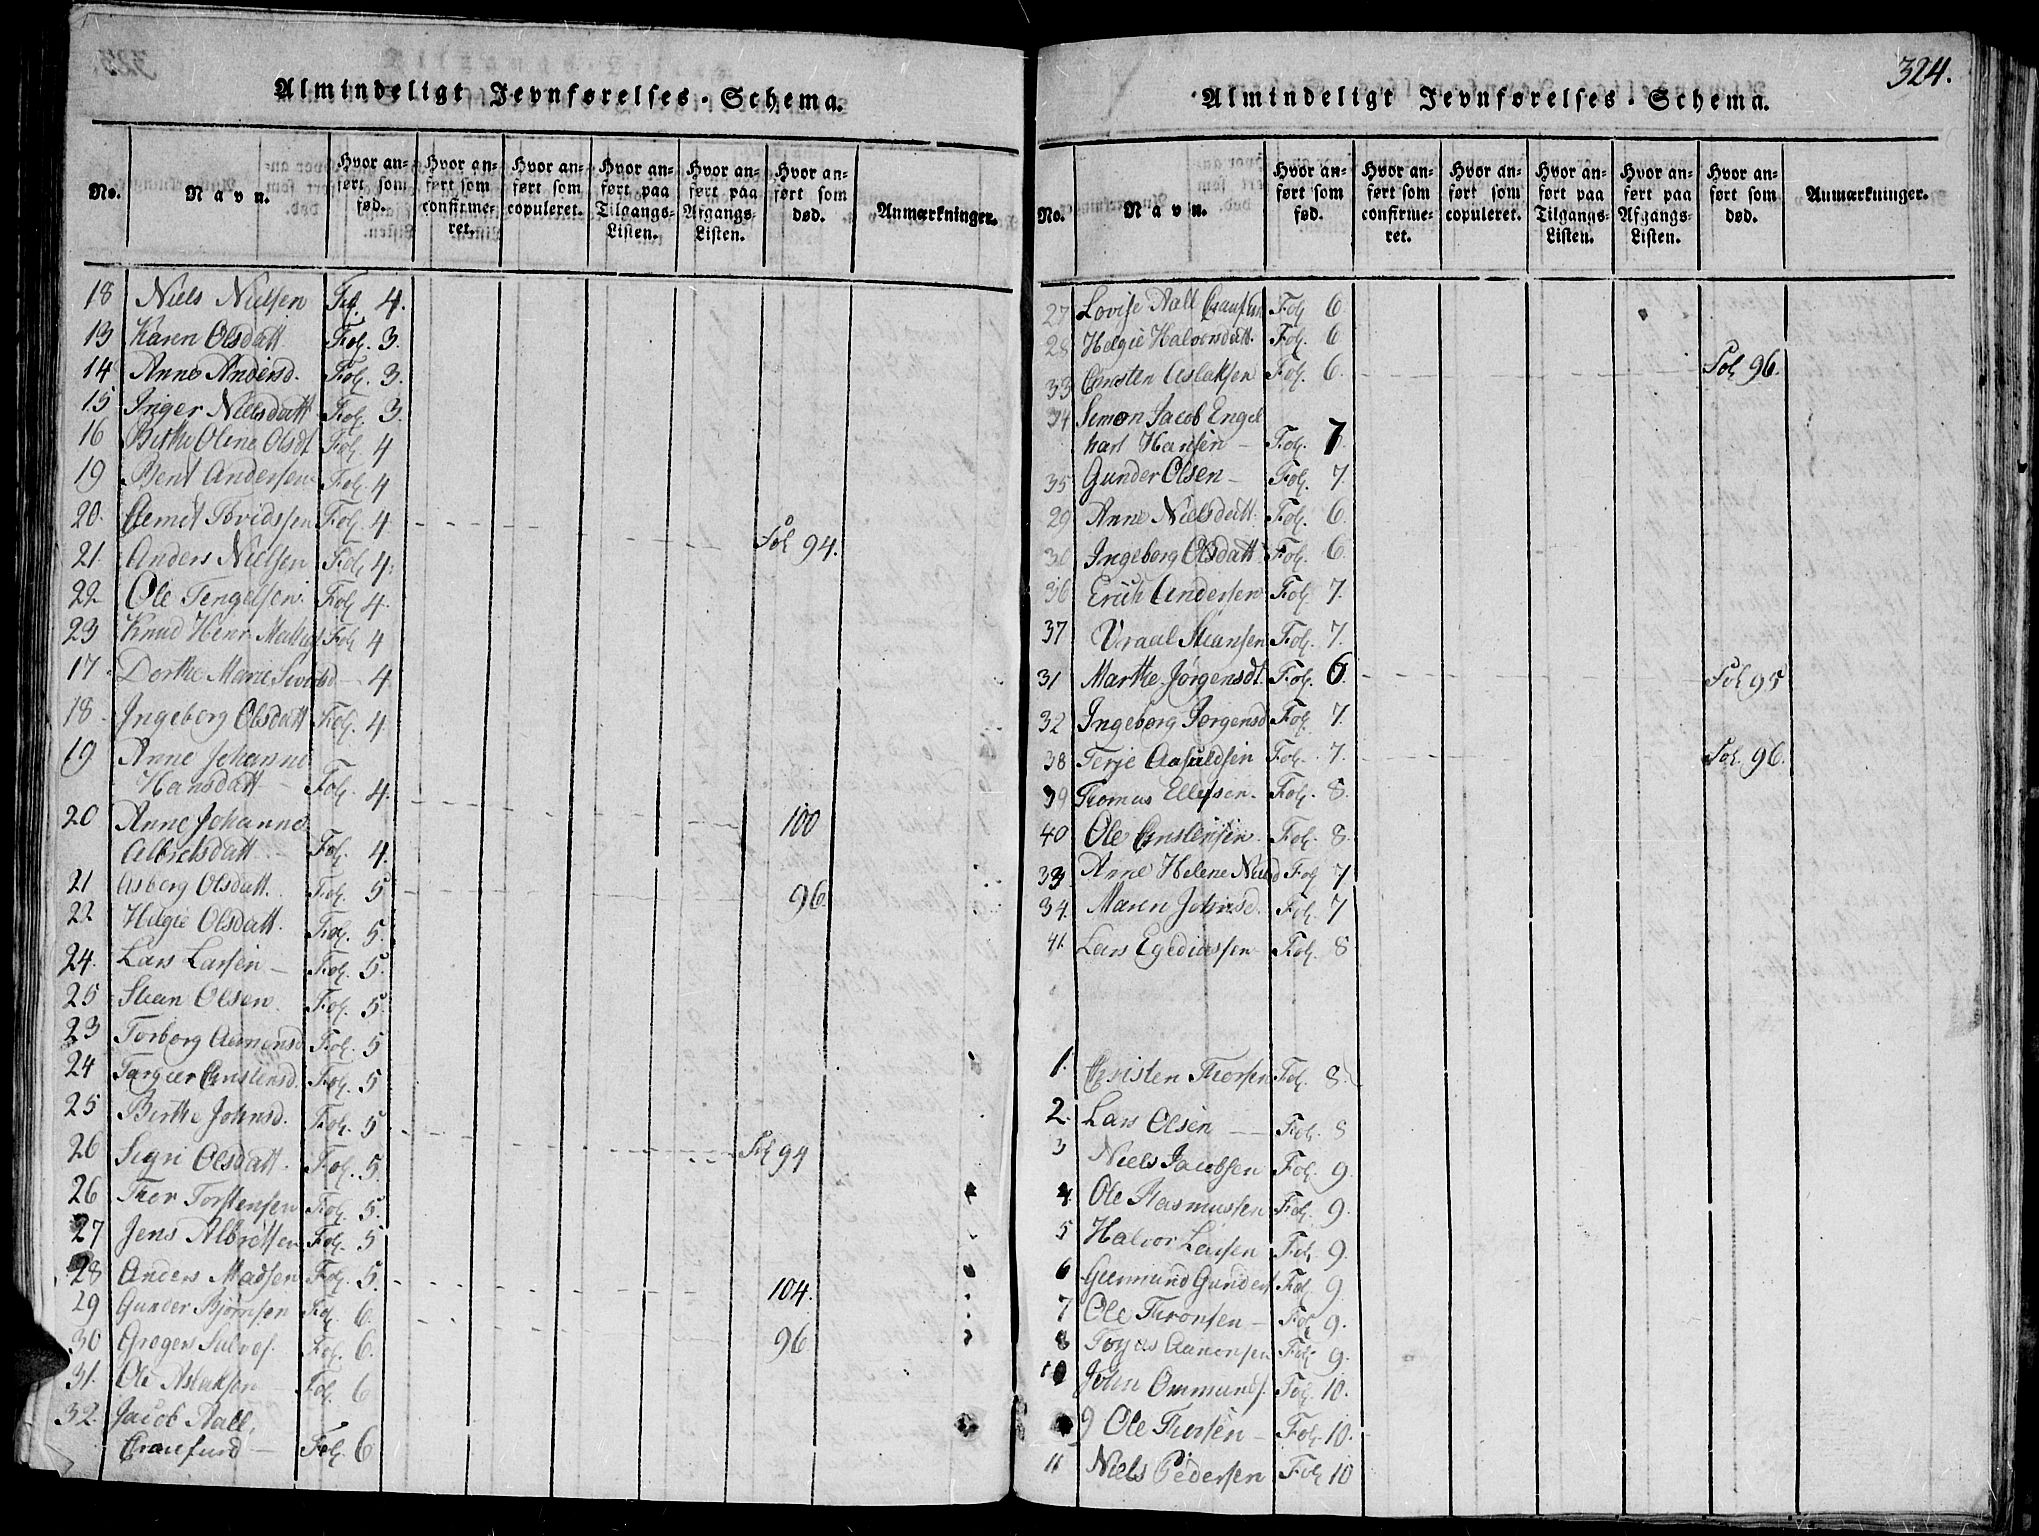 Almindeligt Jevnførelses-Schema.
No. Navn. Hvor anført som fød. Hvor anført som confirmeret. Hvor anført som copuleret. Hvor anført paa Tilgangs-Listen. Hvor anført paa Afgangs-Listen. Hvor anført som død. Anmærkninger.
18 Niels Nielsen Fol. 4.
13 Karen Olsdatt. Fol. 3.
14 Anne Andersd. Fol. 3.
15 Inger Nielsdatt Fol. 3.
16 Birthe Olene Olsdt Fol. 4
19 Bent Andersen Fol. 4
20. Clemet Tovidssen Fol. 4. Fol 94.
21. Anders Nielsen Fol. 4.
22 Ole Tengelsen. Fol. 4.
23 Knud Henr. Fol 4
17. Dorthe Marie Siversd 4
18. Ingeborg Olsdatt Fol. 4.
19 Anne Johanne
Hansdatt — Fol. 4.
20 Anne Johanne 100
Albretsdatt. — Fol. 4.
21 Asberg Olsdatt. Fol. 5 96.
22 Helgie Olsdatt. Fol. 5.
24. Lars Larsen — Fol. 5.
25 Stean Olsen Fol. 5.
23 Torborg Aamonsd Fol. 5
24 Targier Christensd. Fol. 5
25 Birthe Johnsd. Fol. 5
26 Segri Olsdatt. Fol. 5. Fol 94
26 Thor Torstensen Fol. 5.
27 Jens Albretsen Fol. 5
28 Anders Madsen Fol. 5. 104.
29 Gunder Bjørnsen Fol. 6.
30 Gregers Salves. Fol. 6. 96
31. Ole Aslaksen Fol. 6
32. Jacob Aall,
Crauefurd — Fol. 6
324.
Almindeligt Jevnførelses-Schema.
No. Navn. Hvor anført som fød. Hvor anført som confirmeret. Hvor anført som copuleret. Hvor anført paa Tilgangs-Listen. Hvor anført paa Afgangs-Listen. Hvor anført som død. Anmærkninger.
27 Lovise Aall Fol 6
28 Helgie Halvorsdatt. Fol. 6
33 Christen Aslaksen Fol. 6. Fol 96.
34 Simon Jacob Engel
hart Hansen — Fol. 7
35 Gunder Olsen — Fol. 7.
29 Anne Nielsdatt. Fol. 6.
30 Ingeborg Olsdatt. Fol. 6.
36 Erich Andersen Fol. 7.
37 Vraal Steansen Fol. 7.
31 Marthe Jørgensdt. Fol. 6. Fol 95
32 Ingeborg Jørgensd Fol. 7.
38 Terje Aasuldsen Fol. 7. Fol. 96.
39 Thomas Ellefsen. Fol. 8.
40 Ole Christensen. Fol. 8.
33 Anne Helene Nielsd Fol 7
34. Maren Johnsd. Fol. 7
41. Lars Egediassen Fol. 8
1. Christen Thorsen Fol. 8.
2. Lars Olsen — Fol. 8
3 Niels Jacobsen Fol. 9.
4. Ole Rasmussen Fol. 9.
5 Halvor Larsen Fol. 9.
6 Guнmund Gunders Fol 9
7 Ole Thronsen — Fol 9.
8 Torjus Aanonsen Fol 9.
10 John Ommunds. Fol. 10.
9 Ole Thorsen — Fol. 10.
11 Niels Pedersen Fol 10